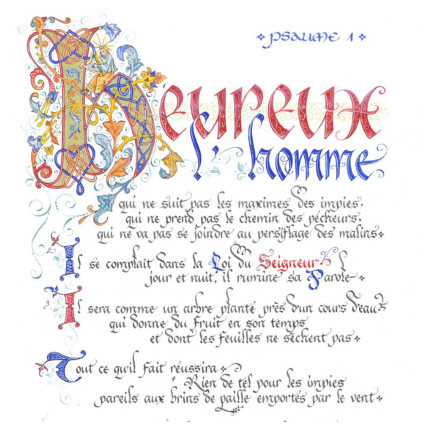 PSAUME 1
Heureux
l'homme
qui ne suit pas les maximes des impies.
qui ne prend pas le chemin des pécheurs.
qui ne va pas se joindre au persiflage des malins
Il se complaît dans la Loi du Seigneur
jour et nuit, il rumine sa Parole
Il sera comme un arbre planté près d'un cours d'eau
qui donne du fruit en son temps
et dont les feuilles ne sèchent pas
Tout ce qu'il fait réussira
Rien de tel pour les impies
pareils aux brins de paille emportés par le vent